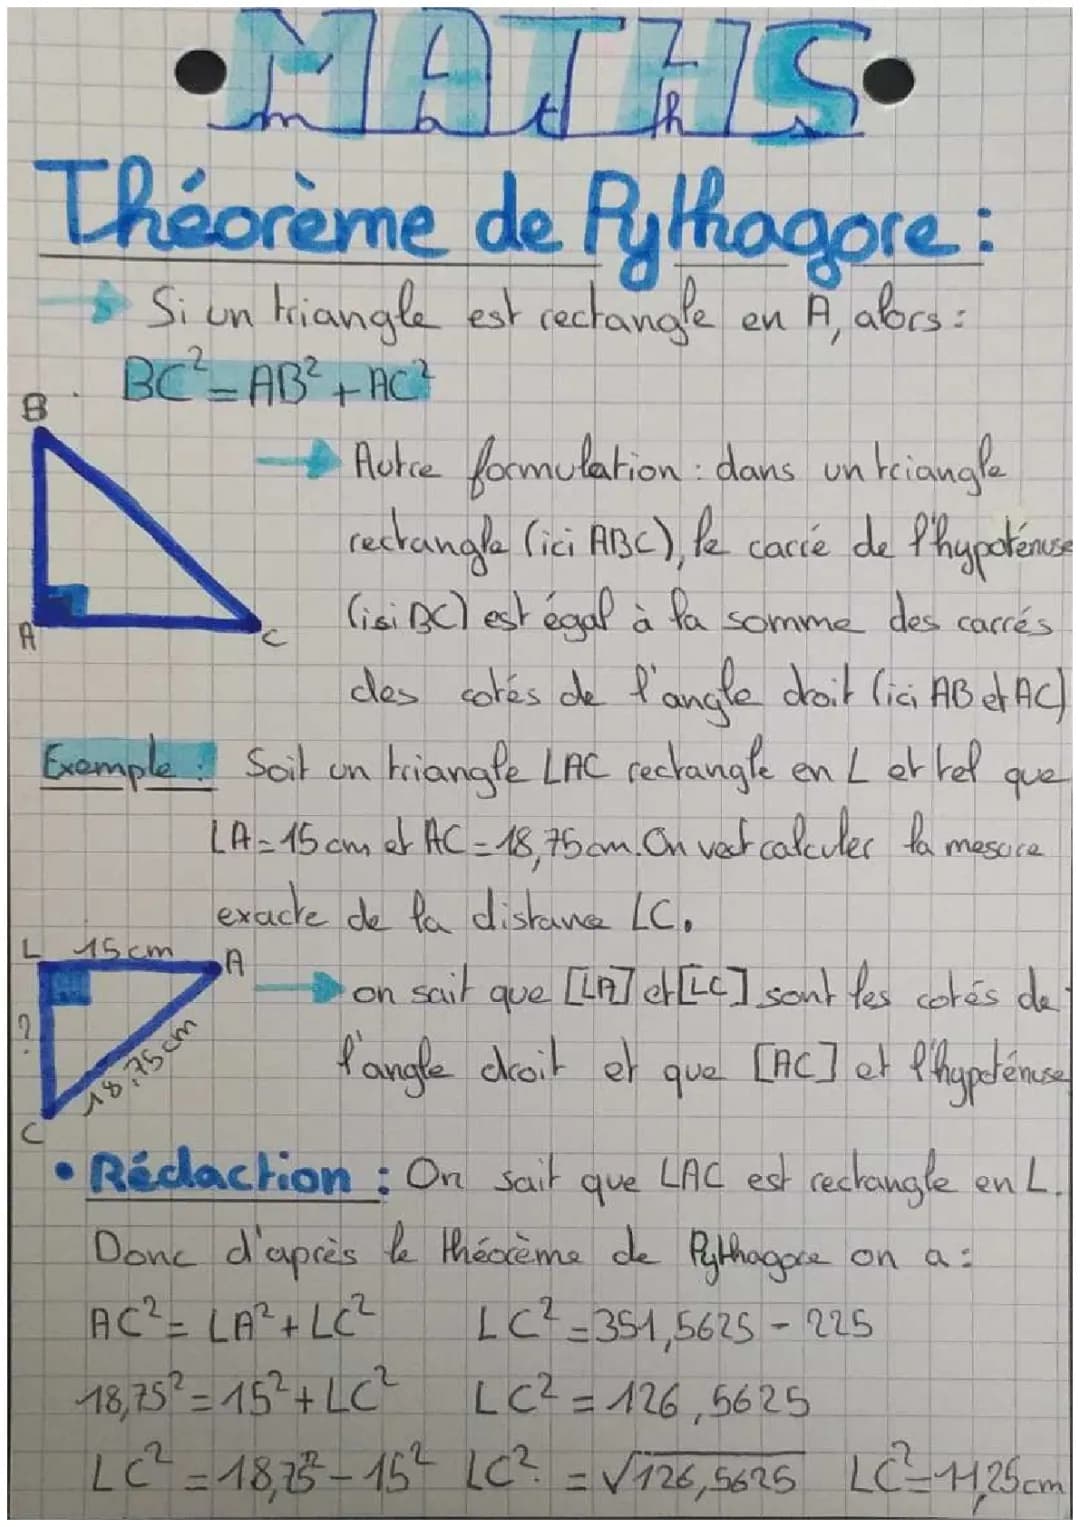 MATHS
maths
Théorème de Pythagore :
→ Si un triangle est rectangle en A, alors :
BC² = AB² + AC²
B
A
C
→ Autre formulation : dans un triangle
rectangle (ici ABC), le carré de l'hypoténuse
(isi BC) est égal à la somme des carrés
des cotés de l'angle droit (ici AB et AC)
Exemple : Soit un triangle LAC rectangle en L et tel que
LA = 15 cm et AC = 18,75 cm. On veut calculer la mesure
exacte de la distance LC.
L 15 cm A
?
18,75 cm
C
→ on sait que [LA] et [LC] sont les cotés de
l'angle droit et que [AC] et l'hypoténuse
• Rédaction : On sait que LAC est rectangle en L.
Donc d'après le théorème de Pythagore on a :
AC² = LA² + LC² LC² = 351,5625 - 225
18,75² = 15² + LC² LC² = 126,5625
LC² = 18,75² - 15² LC² = √126,5625 LC² = 11,25 cm